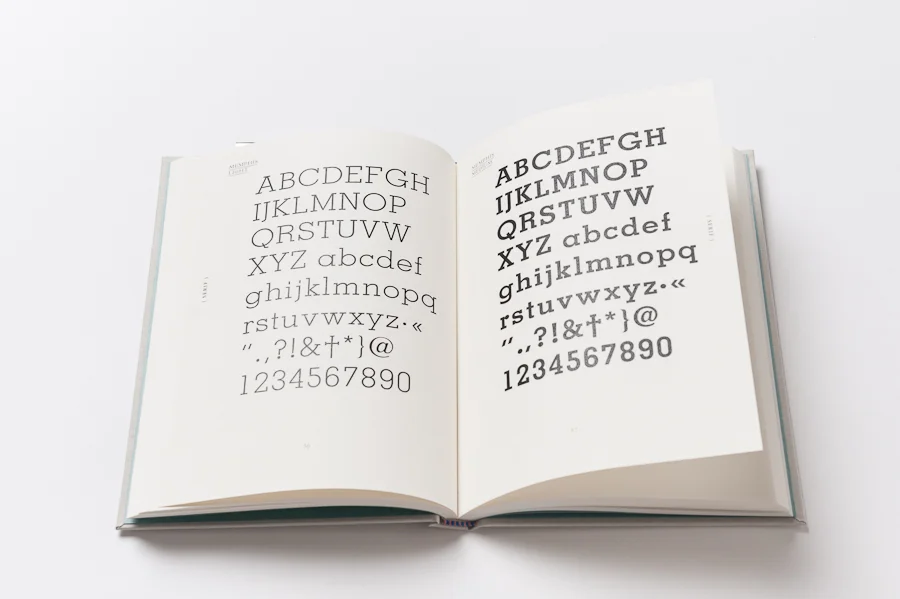 MEMPHIS
LIGHT
ABCDEFGH
IJKLMNOP
QRSTUVW
XYZ abcdef
ghijklmnopq
rstuvwxyz·«
“.,?!&†*}@
1234567890
SERIF
MEMPHIS
ABCDEFGH
IJKLMNOP
QRSTUVW
XYZ abcdef
ghijklmnopq
rstuvwxyz·«
“.,?!&†*}@
1234567890
SERIF